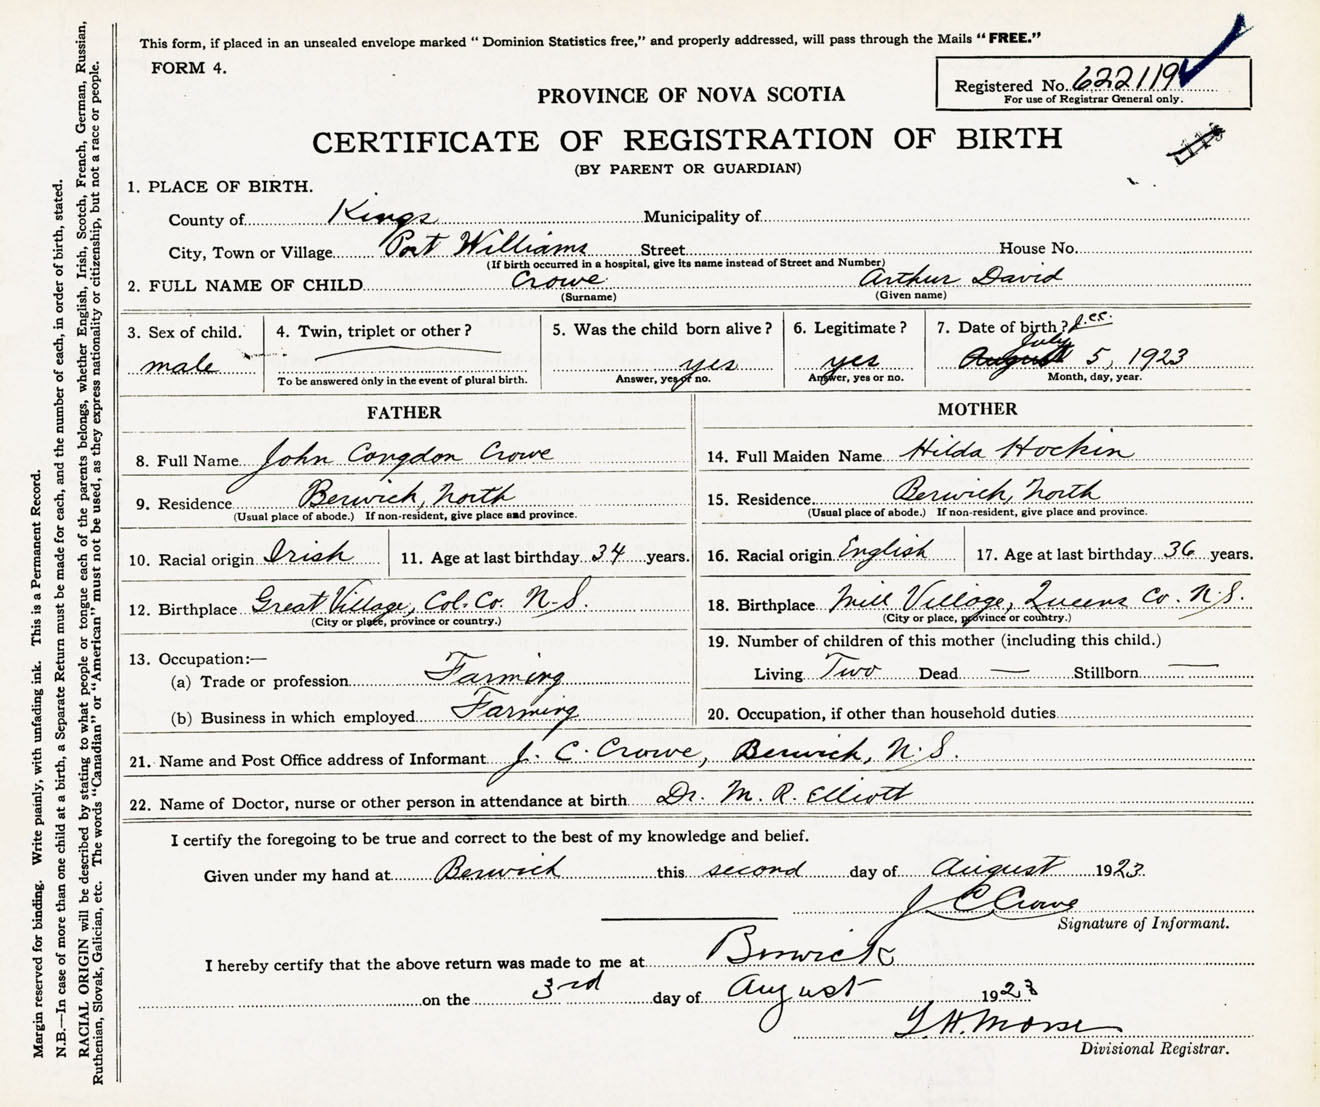 This form, if placed in an unsealed envelope marked "Dominion Statistics free," and properly addressed, will pass through the Mails "FREE."
FORM 4.
Registered No. 622119
For use of Registrar General only.
PROVINCE OF NOVA SCOTIA
CERTIFICATE OF REGISTRATION OF BIRTH
(BY PARENT OR GUARDIAN)
1. PLACE OF BIRTH.
County of Kings Municipality of
City, Town or Village Port Williams Street House No.
(If birth occurred in a hospital, give its name instead of Street and Number)
2. FULL NAME OF CHILD Crowe Arthur David
(Surname) (Given name)
3. Sex of child. male
4. Twin, triplet or other?
To be answered only in the event of plural birth.
5. Was the child born alive? yes
Answer, yes or no.
6. Legitimate? yes
Answer, yes or no.
7. Date of birth? J.C.C.
July
August 5, 1923
Month, day, year.
FATHER
8. Full Name John Congdon Crowe
9. Residence Berwick, North
(Usual place of abode.) If non-resident, give place and province.
10. Racial origin Irish 11. Age at last birthday 34 years.
12. Birthplace Great Village, Col. Co. N.S.
(City or place, province or country.)
13. Occupation:—
(a) Trade or profession Farming
(b) Business in which employed Farming
MOTHER
14. Full Maiden Name Hilda Hockin
15. Residence Berwick, North
(Usual place of abode.) If non-resident, give place and province.
16. Racial origin English 17. Age at last birthday 36 years.
18. Birthplace Mill Village, Queens Co. N.S.
(City or place, province or country.)
19. Number of children of this mother (including this child.)
Living Two Dead — Stillborn —
20. Occupation, if other than household duties
21. Name and Post Office address of Informant J. C. Crowe, Berwick, N.S.
22. Name of Doctor, nurse or other person in attendance at birth Dr. M. R. Elliott
I certify the foregoing to be true and correct to the best of my knowledge and belief.
Given under my hand at Berwick this second day of August 1923.
J C Crowe
Signature of Informant.
I hereby certify that the above return was made to me at Berwick
on the 3rd day of August 1923
Morse
Divisional Registrar.
Margin reserved for binding. Write plainly, with unfading ink. This is a Permanent Record.
N.B.—In case of more than one child at a birth, a Separate Return must be made for each, and the number of each, in order of birth, stated.
RACIAL ORIGIN will be described by stating to what people or tongue each of the parents belongs, whether English, Irish, Scotch, French, German, Russian,
Ruthenian, Slovak, Galician, etc. The words "Canadian" or "American" must not be used, as they express nationality or citizenship, but not a race or people.